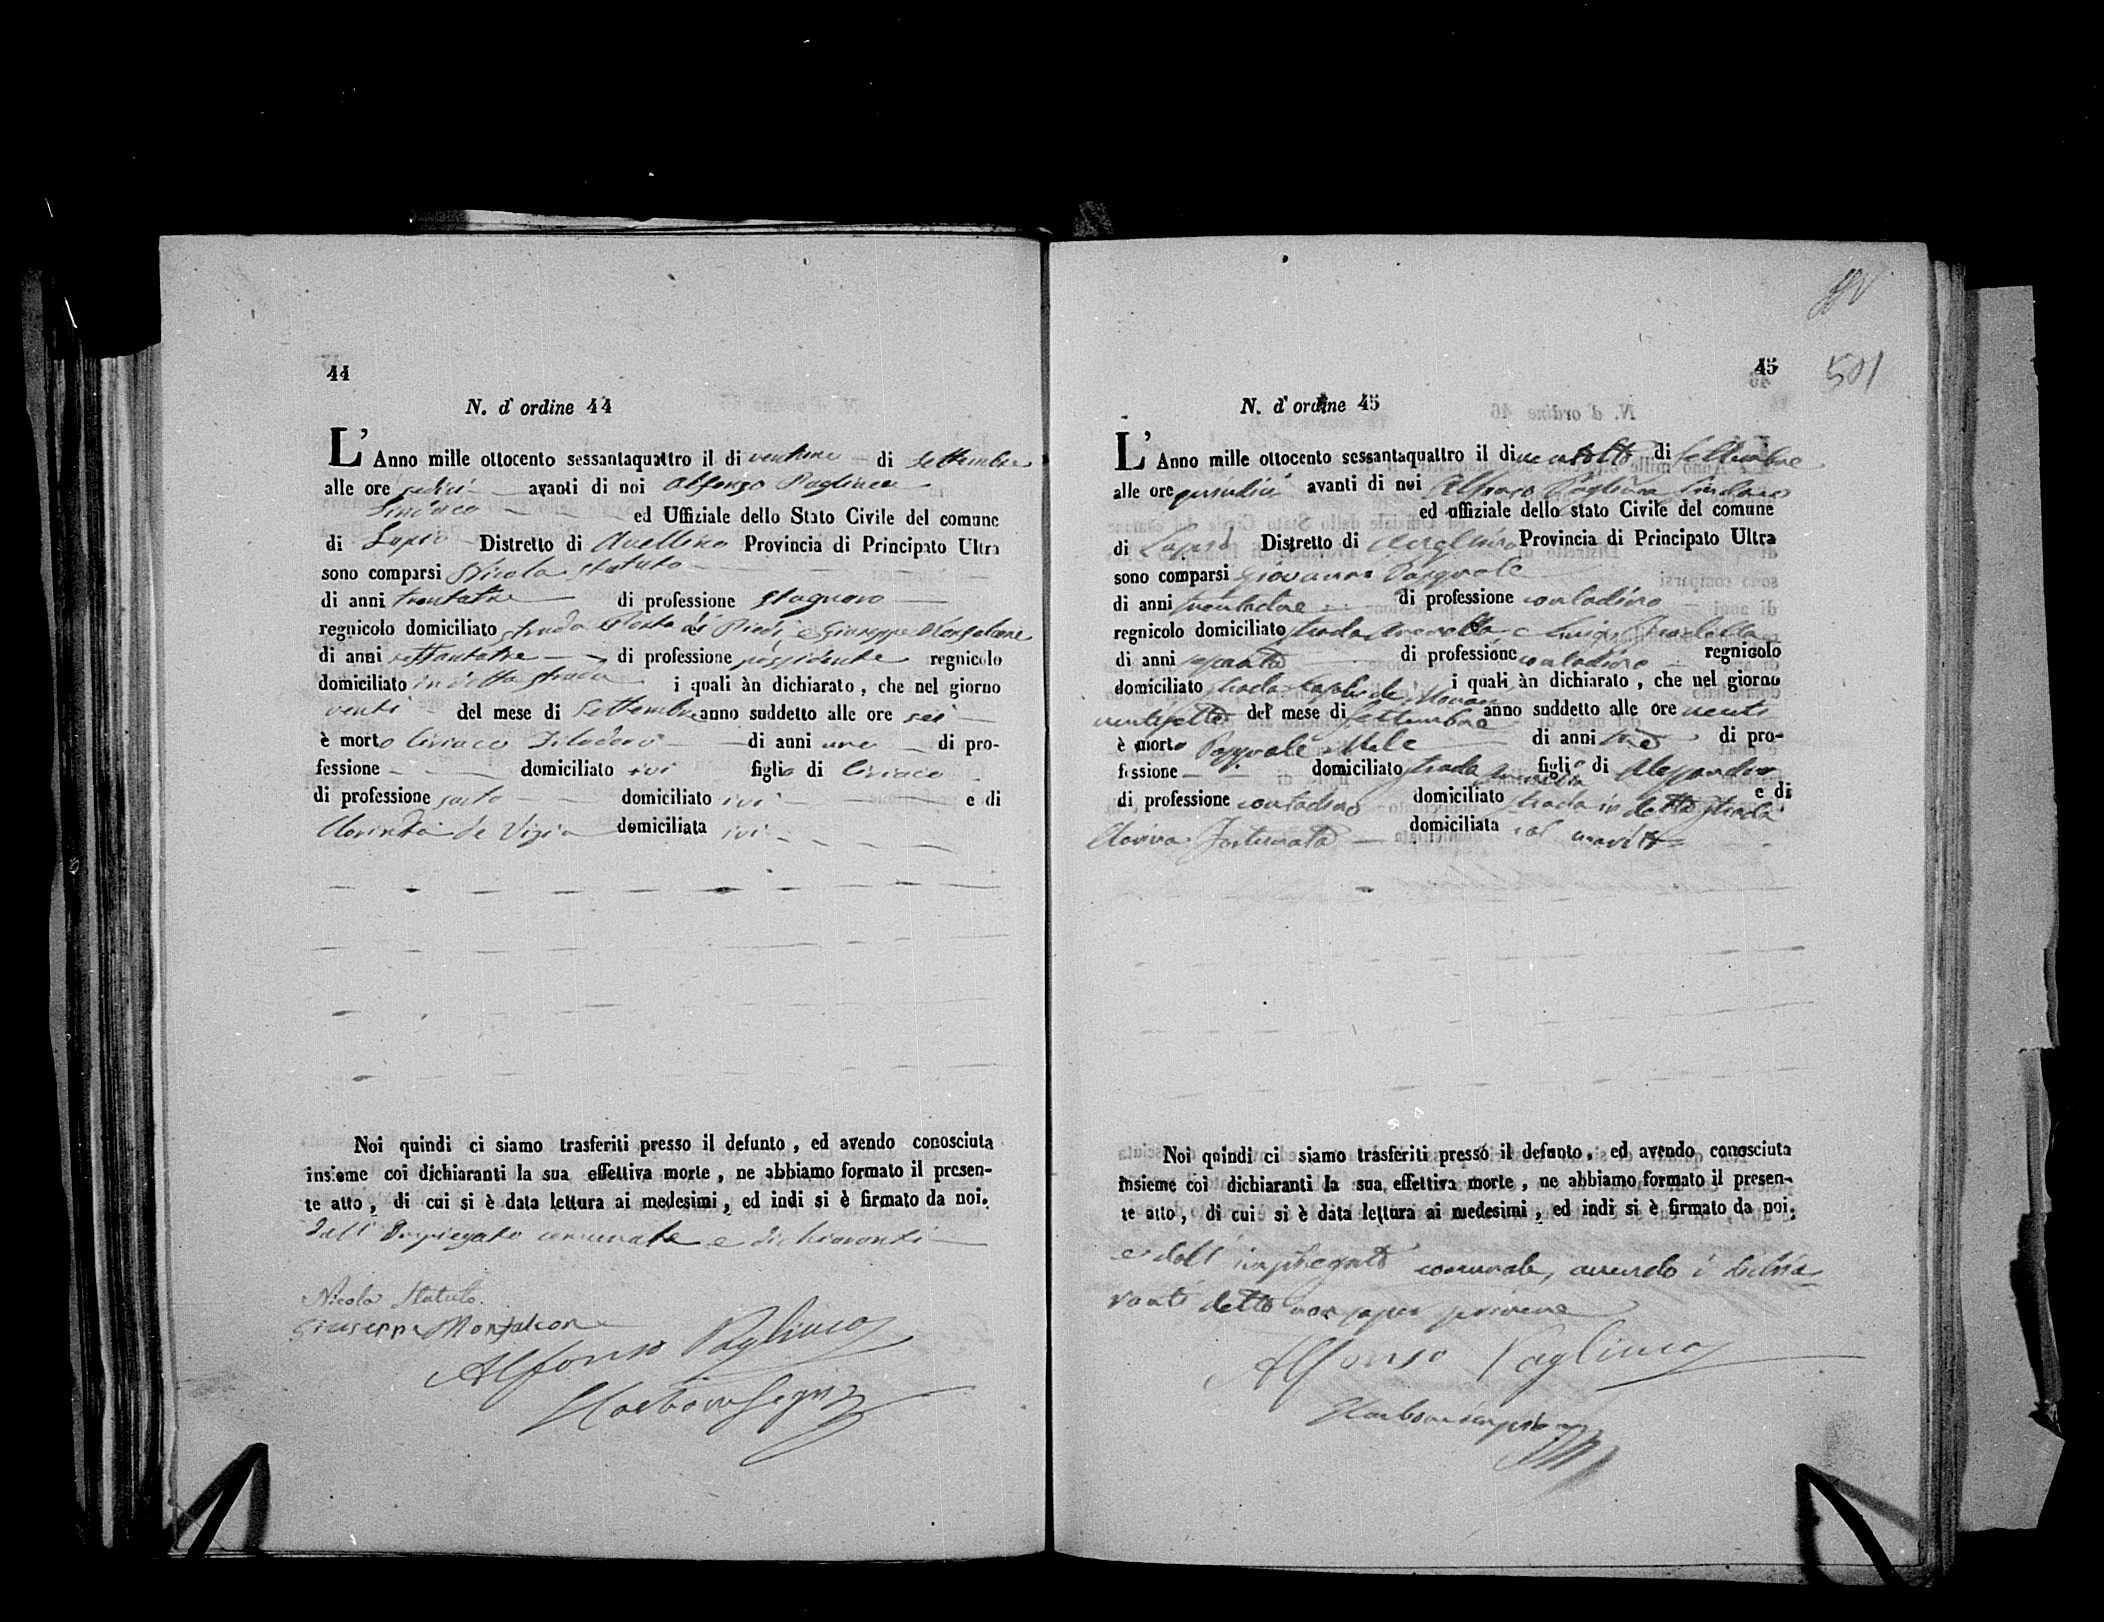 44
N. d' ordine 44
L' Anno mille ottocento sessantaquattro il di ventuno di Settembre
alle ore sedici avanti di noi Alfonzo Pagliuca
Sindaco ed Uffiziale dello Stato Civile del comune
di Lapio Distretto di Avellino Provincia di Principato Ultra
sono comparsi Nicola Statuto
di anni trentatre di professione Stagnaro
regnicolo domiciliato strada di Piedi e Giuseppe Monfalcone
di anni settantatre di professione possidente regnicolo
domiciliato in detta strada i quali àn dichiarato, che nel giorno
venti del mese di Settembre anno suddetto alle ore sei
è morto Ciriaco Filadoro di anni uno di pro-
fessione domiciliato ivi figlio di Ciriaco
di professione sarto domiciliato ivi e di
Clorinda de Vizia domiciliata ivi
Noi quindi ci siamo trasferiti presso il defunto, ed avendo conosciuta
insieme coi dichiaranti la sua effettiva morte, ne abbiamo formato il presen-
te atto, di cui si è data lettura ai medesimi, ed indi si è firmato da noi.
dall' Impiegato comunale e dichiaranti
Nicola Statuto
Giuseppe Monfalcone
Alfonso Pagliuca
501
45
N. d' ordine 45
L' Anno mille ottocento sessantaquattro il di ventotto di Settembre
alle ore quindici avanti di noi Alfonso Pagliuca Sindaco
ed uffiziale dello stato Civile del comune
di Lapio Distretto di Avellino Provincia di Principato Ultra
sono comparsi Giovanni Pasquale
di anni trentatre di professione contadino
regnicolo domiciliato strada e Luigi
di anni sessanta di professione contadino regnicolo
domiciliato strada i quali àn dichiarato, che nel giorno
ventisette del mese di Settembre anno suddetto alle ore venti
è morto Pasquale Mele di anni tre di pro-
fessione domiciliato strada figlio di Alessandro
di professione contadino domiciliato strada in detta strada e di
Fortunato domiciliata col marito
Noi quindi ci siamo trasferiti presso il defunto, ed avendo conosciuta
insieme coi dichiaranti la sua effettiva morte, ne abbiamo formato il presen-
te atto, di cui si è data lettura ai medesimi, ed indi si è firmato da noi.
e dall' impiegato comunale, avendo i dichia
ranti detto non saper scrivere
Alfonso Pagliuca